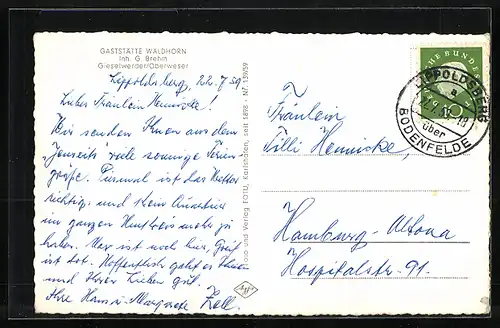 GASTSTÄTTE WALDHORN
Inh. G. Brehm
Gieselwerder/Oberweser
Lippoldsberg, 22.7.59
Liebes Fräulein Hennicke!
Wir senden Ihnen aus dem
"Jenseits" viele sonnige Ferien-
grüße. Diesmal ist das Wetter
richtig, und kein Quartier
im ganzen Hause mehr zu
haben. ist noch hier,
ist tot. Hoffentlich geht es Ihnen
und Ihrer Lieben gut.
Ihre Hans u. Margarete Zoll.
Foto und Verlag FOTU, Karlshafen, seit 1898 - Nr. 139/59
Agfa
Fräulein
Tilli Hennicke,
Hamburg-Altona
Hospitalstr. 91.
DEUTSCHE BUNDESPOST
10
LIPPOLDSBERG
a
über
BODENFELDE